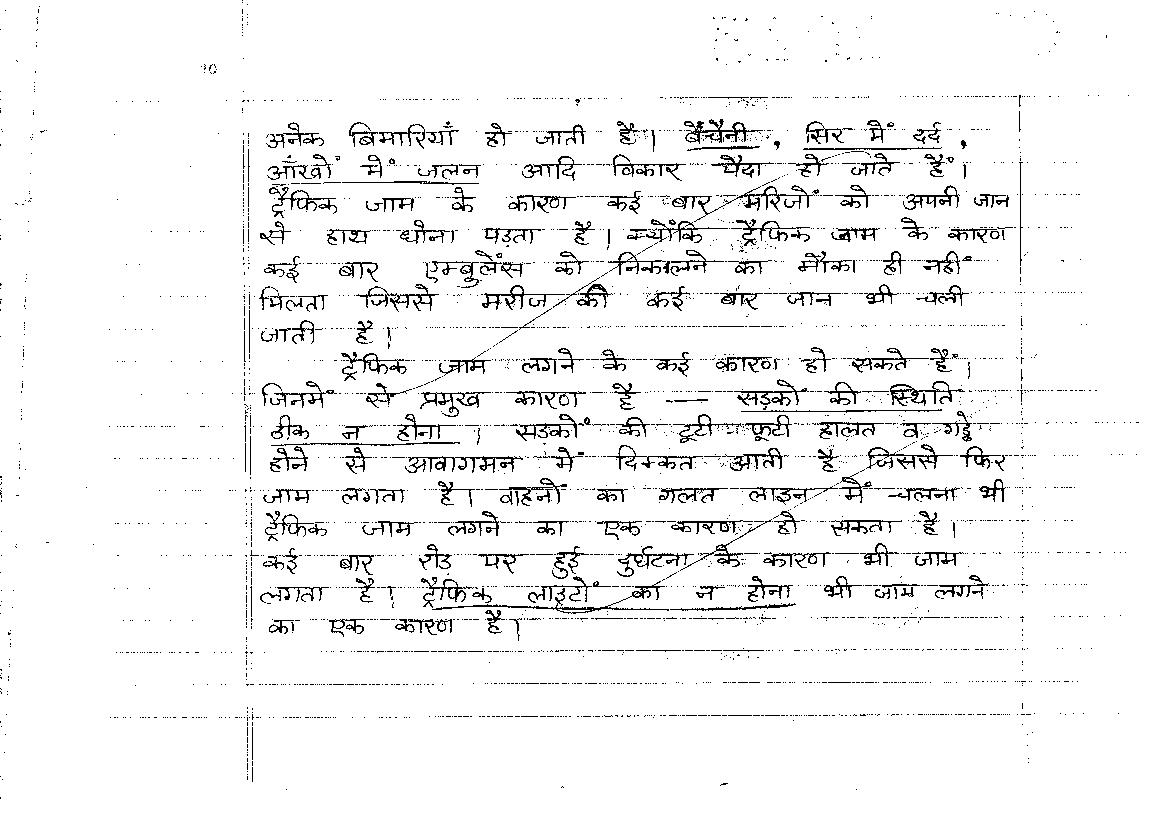 10
अनेक बिमारियाँ हो जाती है। बैचेनी, सिर में दर्द,
आँखों में जलन आदि विकार पैदा हो जाते हैं।
ट्रैफिक जाम के कारण कई बार मरिजों को अपनी जान
से हाथ धोना पड़ता है। क्योंकि ट्रैफिक जाम के कारण
कई बार एम्बुलेंस को निकालने का मौका ही नहीं
मिलता जिससे मरीज की कई बार जान भी चली
जाती है।
ट्रैफिक जाम लगने के कई कारण हो सकते हैं।
जिनमें से प्रमुख कारण है — सड़कों की स्थिति
ठीक न होना। सड़कों की टूटी फूटी हालत व गड्ढे
होने से आवागमन में दिक्कत आती है जिससे फिर
जाम लगता है। वाहनों का गलत लाइन में चलना भी
ट्रैफिक जाम लगने का एक कारण हो सकता है।
कई बार रोड़ पर हुई दुर्घटना के कारण भी जाम
लगता है। ट्रैफिक लाइटों का न होना भी जाम लगने
का एक कारण है।